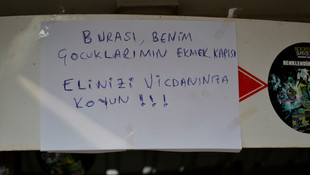 BURASI, BENİM
ÇOCUKLARIMIN EKMEK KAPISI
ELİNİZİ VİCDANINIZA
KOYUN !!!